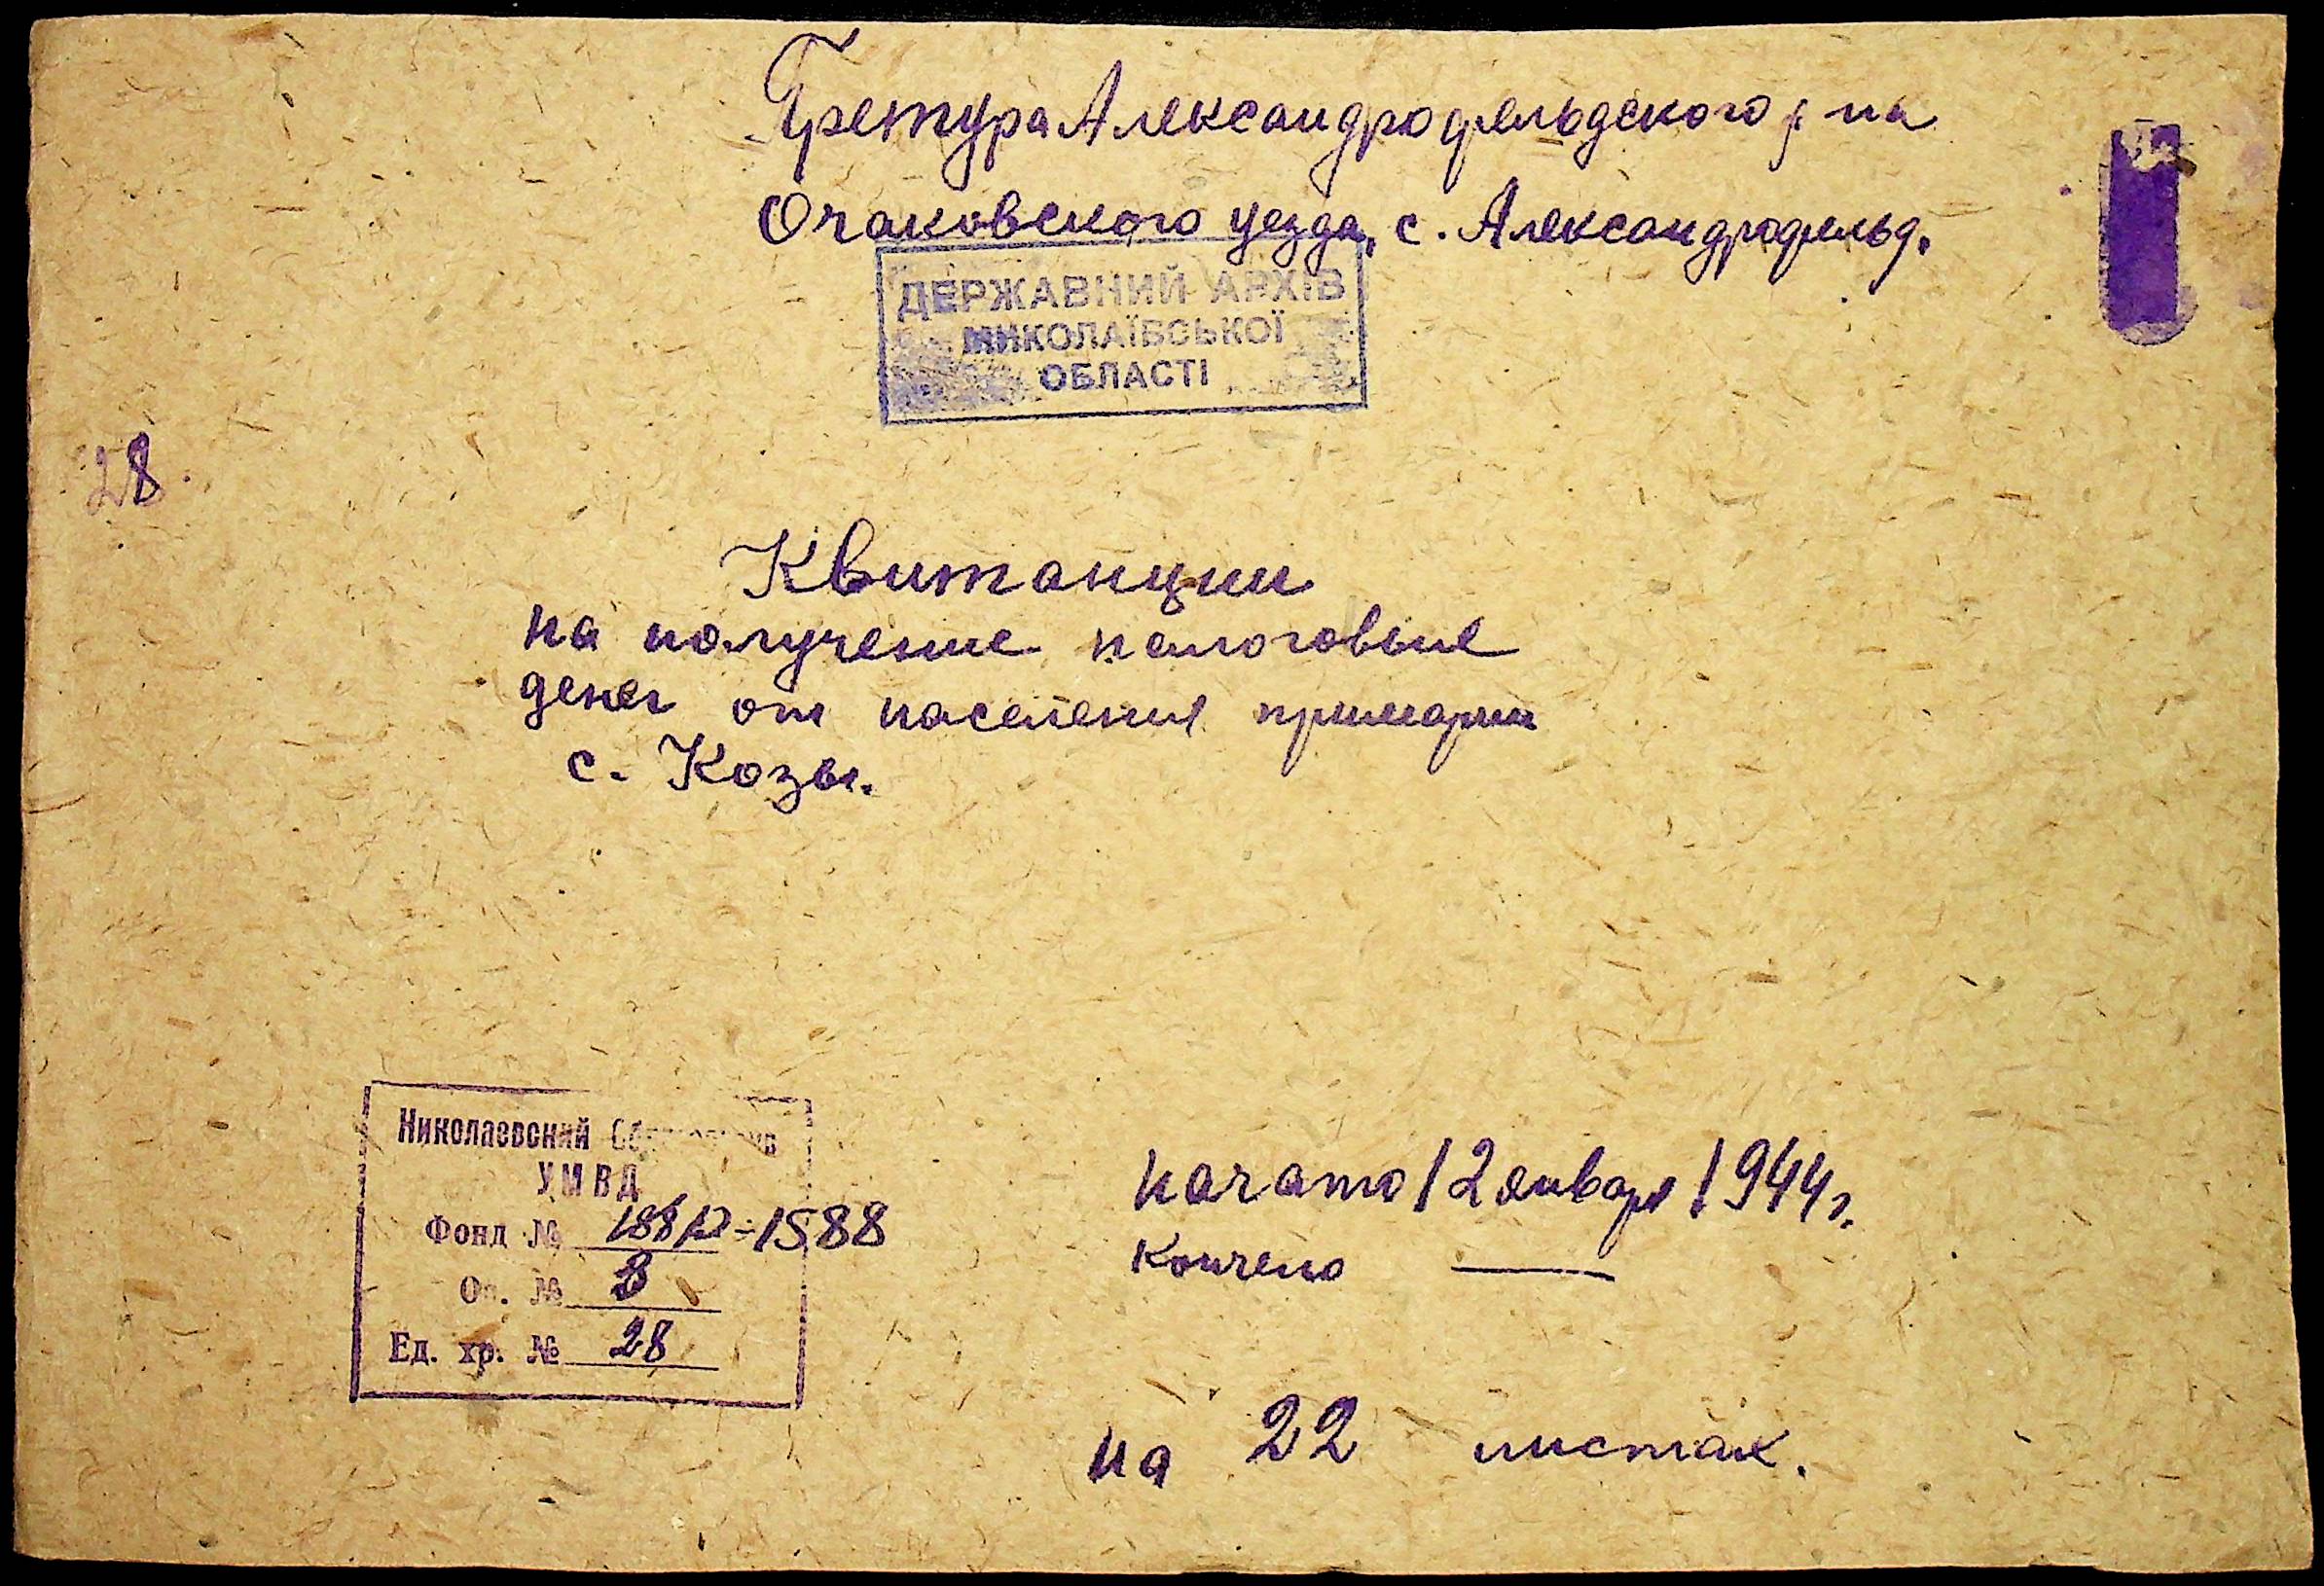 Претура Александрофельдского р-на
Очаковского уезда, с. Александрофельд.
ДЕРЖАВНИЙ АРХІВ
МИКОЛАЇВСЬКОЇ
ОБЛАСТІ
28
Квитанции
на получение налоговые
денег от населения примарии
с. Козы.
Николаевский
УМВД
Фонд № -1588
Оп. № 3
Ед. хр. № 28
начато 12 января 1944 г.
кончено ——
на 22 листах.